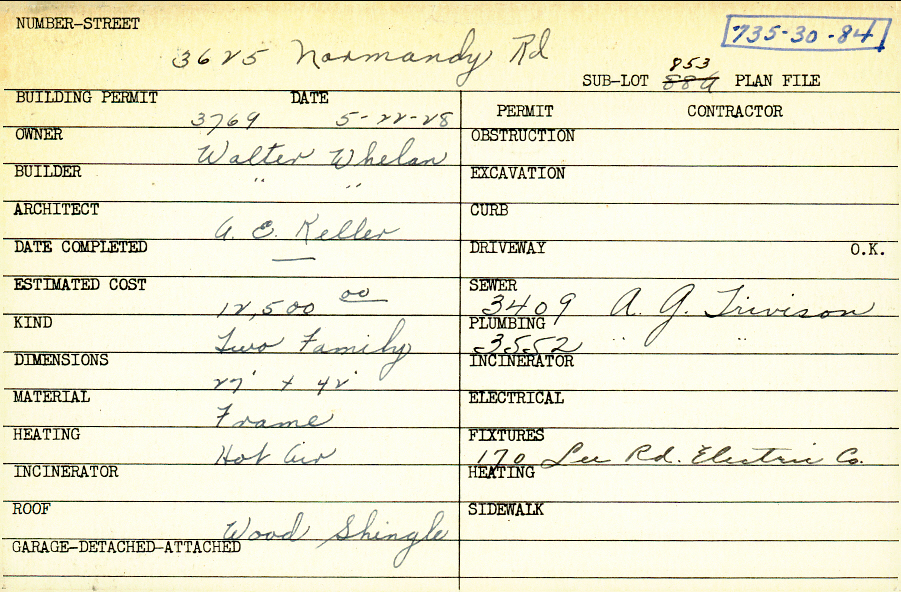 NUMBER-STREET
735-30-84
3625 Normandy Rd
853
SUB-LOT 889 PLAN FILE
BUILDING PERMIT DATE
3769 5-22-28
OWNER
Walter Whelan
BUILDER
" "
ARCHITECT
A. C. Keller
DATE COMPLETED
—
ESTIMATED COST
12,500 00
KIND
Two Family
DIMENSIONS
27' x 42'
MATERIAL
Frame
HEATING
Hot Air
INCINERATOR
ROOF
Wood Shingle
GARAGE-DETACHED-ATTACHED
PERMIT CONTRACTOR
OBSTRUCTION
EXCAVATION
CURB
DRIVEWAY O.K.
SEWER
3409 A. G. Trivison
PLUMBING
3552 " "
INCINERATOR
ELECTRICAL
FIXTURES
170 Lee Rd. Electric Co.
HEATING
SIDEWALK